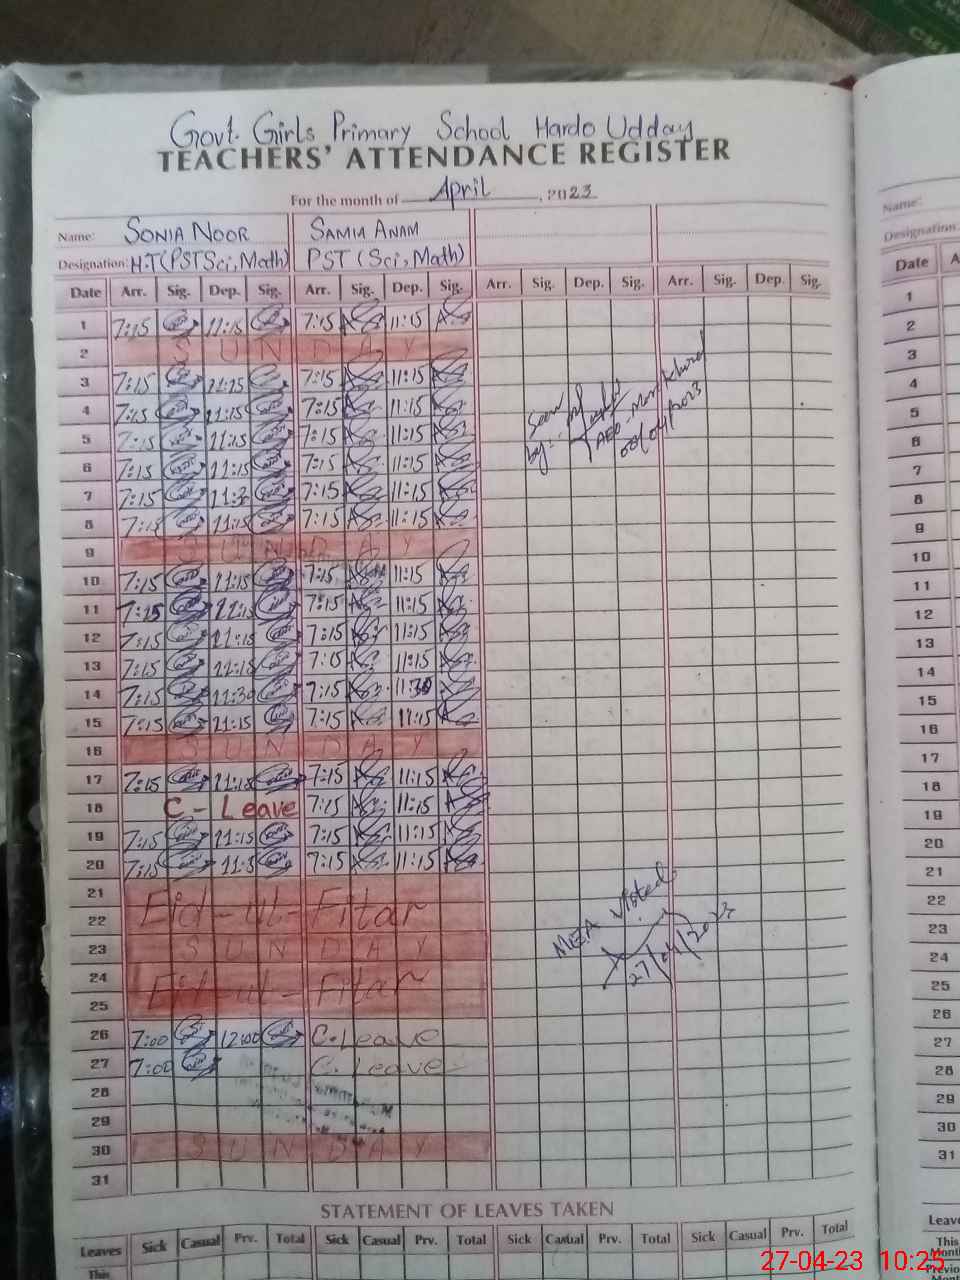 Govt. Girls Primary School Hardo Udday
TEACHERS' ATTENDANCE REGISTER
For the month of April, 2023
Name: SONIA NOOR SAMIA ANAM
Designation: H.T(PST Sci, Math) PST (Sci, Math)
Date Arr. Sig. Dep. Sig. Arr. Sig. Dep. Sig. Arr. Sig. Dep. Sig. Arr. Sig. Dep. Sig.
1 7:15 11:15 7:15 11:15
2 SUNDAY
3 7:15 11:15 7:15 11:15
4 7:15 11:15 7:15 11:15
5 7:15 11:15 7:15 11:15
6 7:15 11:15 7:15 11:15
7 7:15 7:15 11:15
8 7:15 11:15 7:15 11:15
9 SUNDAY
10 7:15 11:15 7:15 11:15
11 7:15 11:15 7:15 11:15
12 7:15 11:15 7:15 11:15
13 7:15 11:15 7:15 11:15
14 7:15 11:30 7:15 11:30
15 7:15 11:15 7:15 11:15
16 SUNDAY
17 7:15 11:15 7:15 11:15
18 C - Leave 7:15 11:15
19 7:15 11:15 7:15 11:15
20 7:15 7:15 11:15
21
22 Eid-ul-Fitar
23 SUNDAY
24
25 Eid-ul-Fitar
26 7:00 12:00 C.Leave
27 7:00 C. Leave
28
29
30 SUNDAY
31
Seen
by:
AEO
04/2023
MEA Visted
27/04/2023
STATEMENT OF LEAVES TAKEN
Leaves Sick Casual Prv. Total Sick Casual Prv. Total Sick Casual Prv. Total Sick Casual Prv. Total
This
Name:
Designation:
Date
1
2
3
4
5
6
7
8
9
10
11
12
13
14
15
16
17
18
19
20
21
22
23
24
25
26
27
28
29
30
31
Leave
This
Mont
27-04-23 10:25